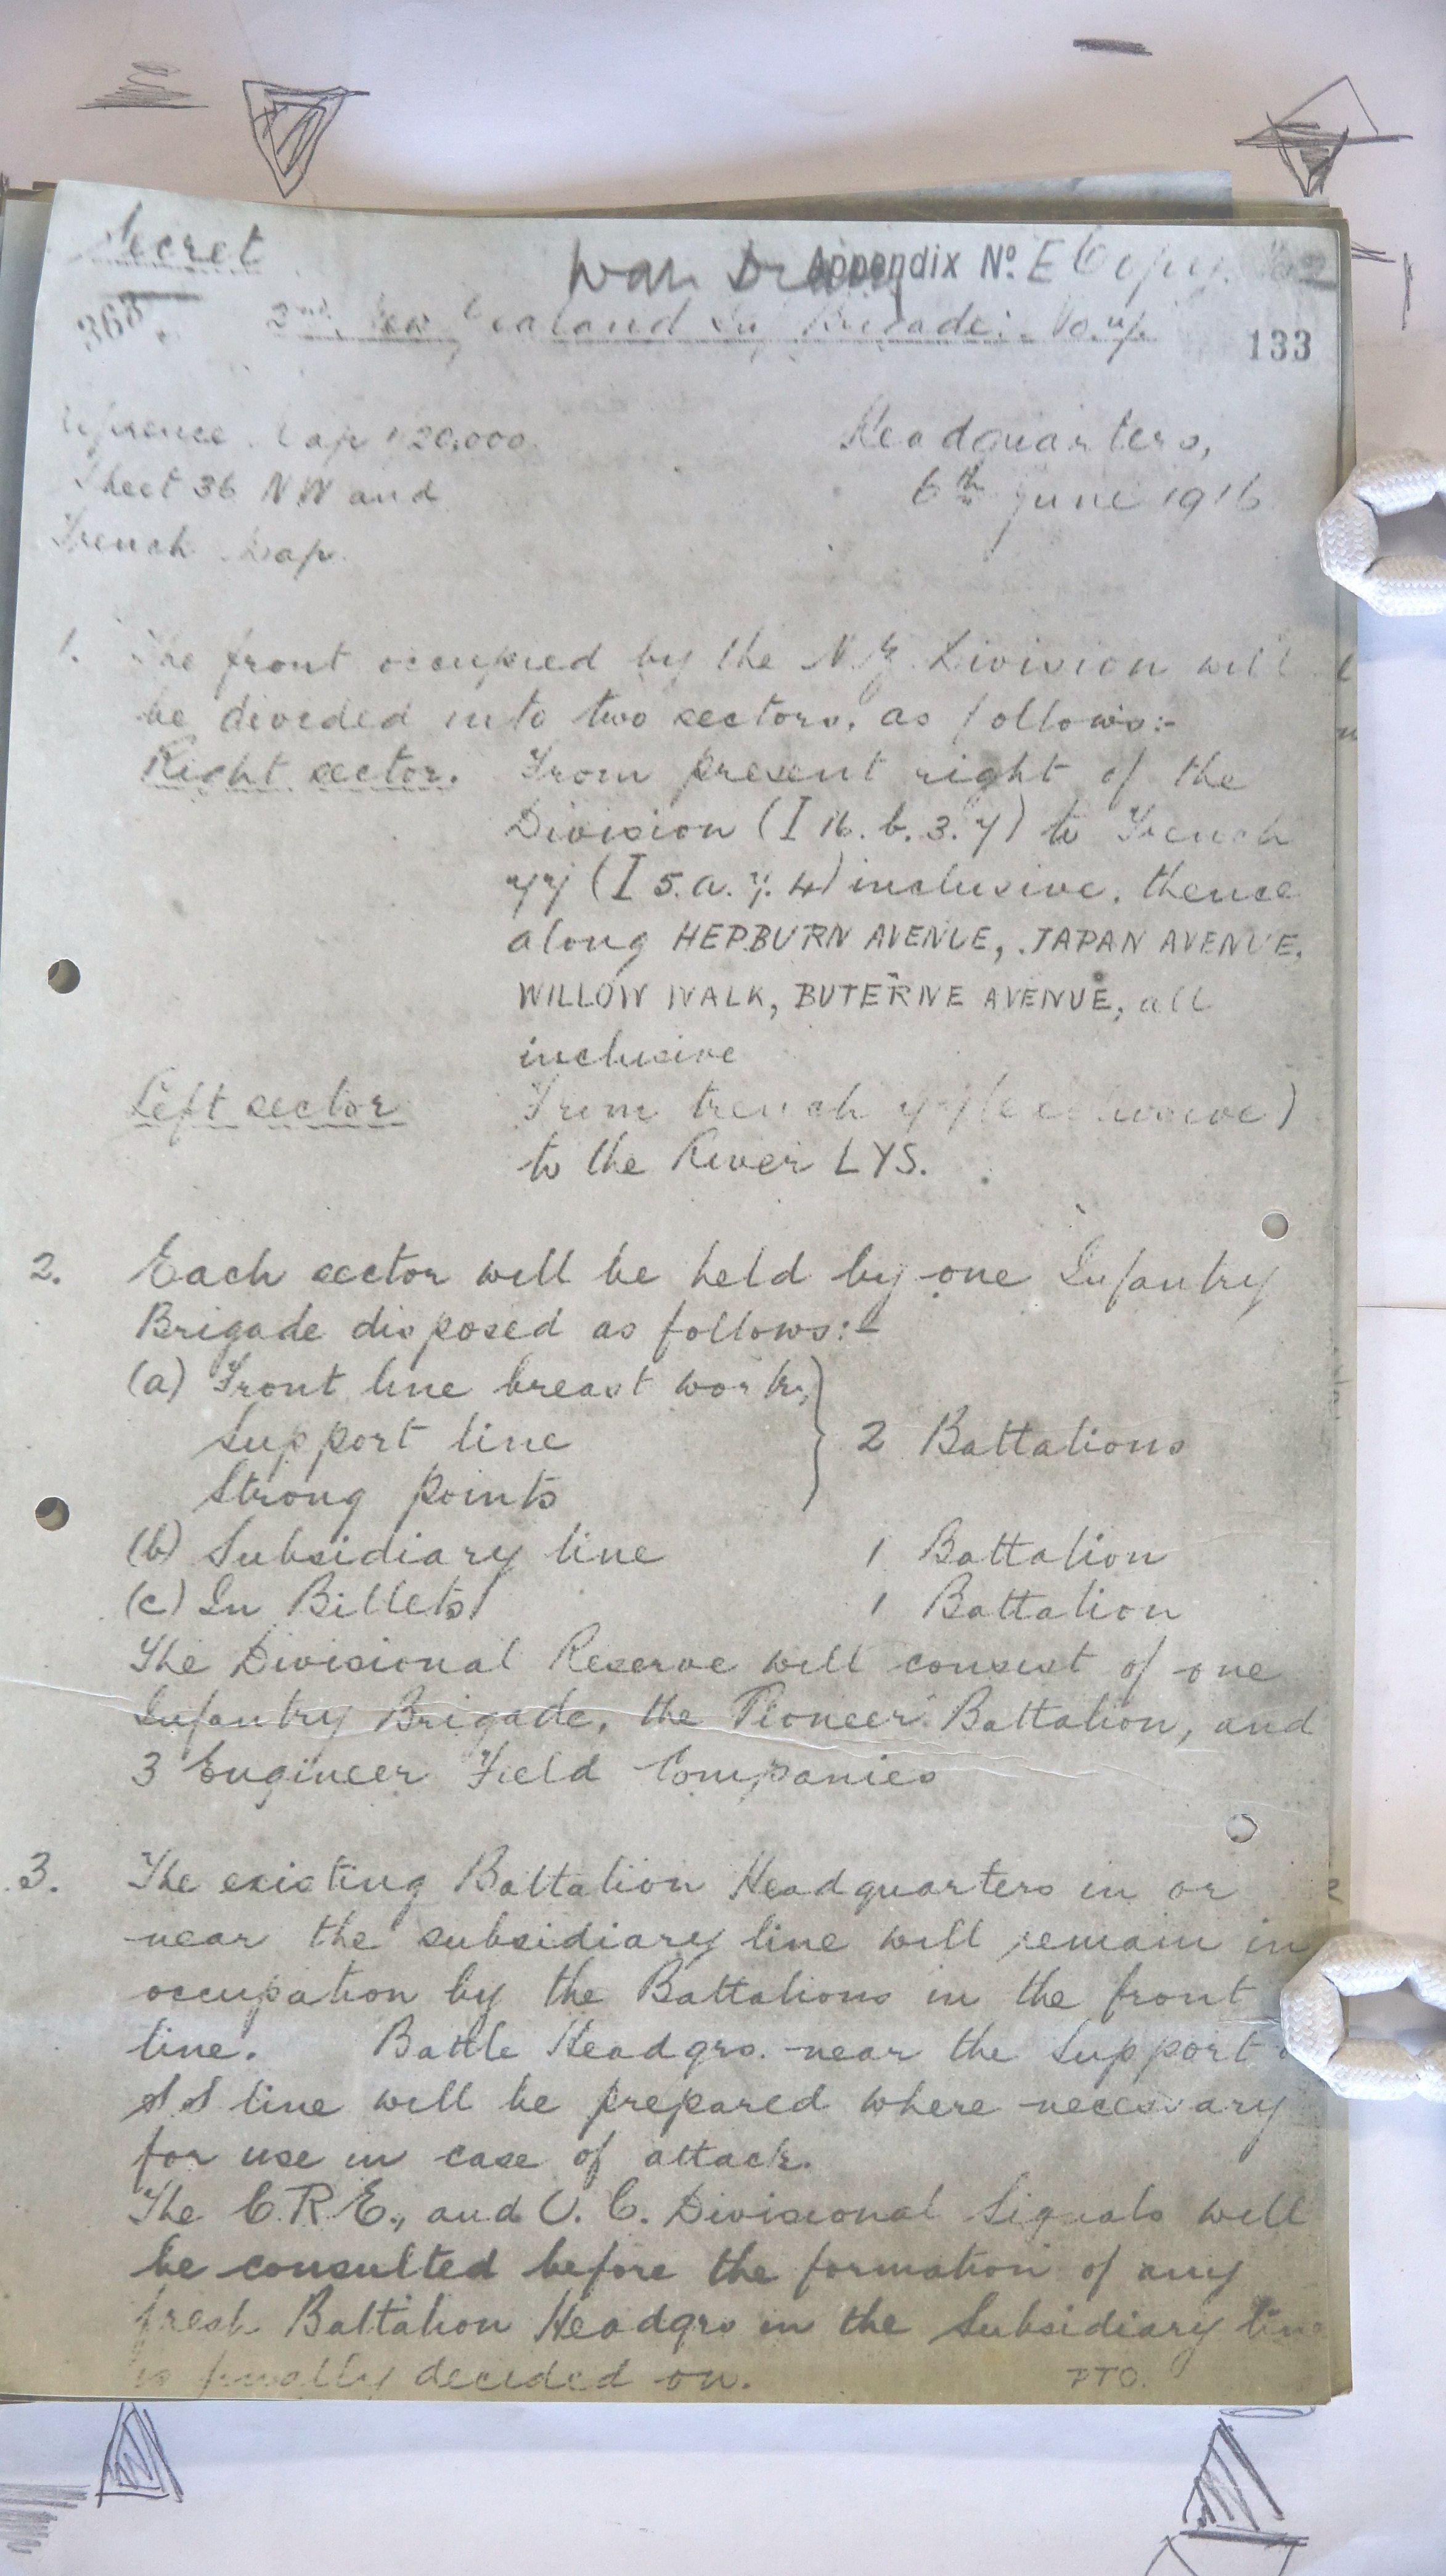 Secret
War Diary Appendix No. E Copy
363
2nd New Zealand Inf Brigade:-
133
Reference Map 1/20,000
Headquarters,
Sheet 36 NW and
6th June 1916
Trench Map.
1. The front occupied by the N.Z. Division will
be divided into two sectors, as follows:-
Right sector. From present right of the
Division (I 16. b. 3. 7) to Trench
77 (I 5. a. 7. 4) inclusive, thence
along HEPBURN AVENUE, JAPAN AVENUE,
WILLOW WALK, BUTERNE AVENUE, all
inclusive
Left sector From trench 77 (exclusive)
to the River LYS.
2. Each sector will be held by one Infantry
Brigade disposed as follows:-
(a) Front line breast works,
Support line } 2 Battalions
Strong points
(b) Subsidiary line 1 Battalion
(c) In Billets 1 Battalion
The Divisional Reserve will consist of one
Infantry Brigade, the Pioneer Battalion, and
3 Engineer Field Companies
3. The existing Battalion Headquarters in or
near the subsidiary line will remain in
occupation by the Battalions in the front
line. Battle Headqrs. near the Support
S.S line will be prepared where necessary
for use in case of attack.
The C.R.E., and O.C. Divisional Signals will
be consulted before the formation of any
fresh Battalion Headqrs in the Subsidiary line
is finally decided on. PTO.